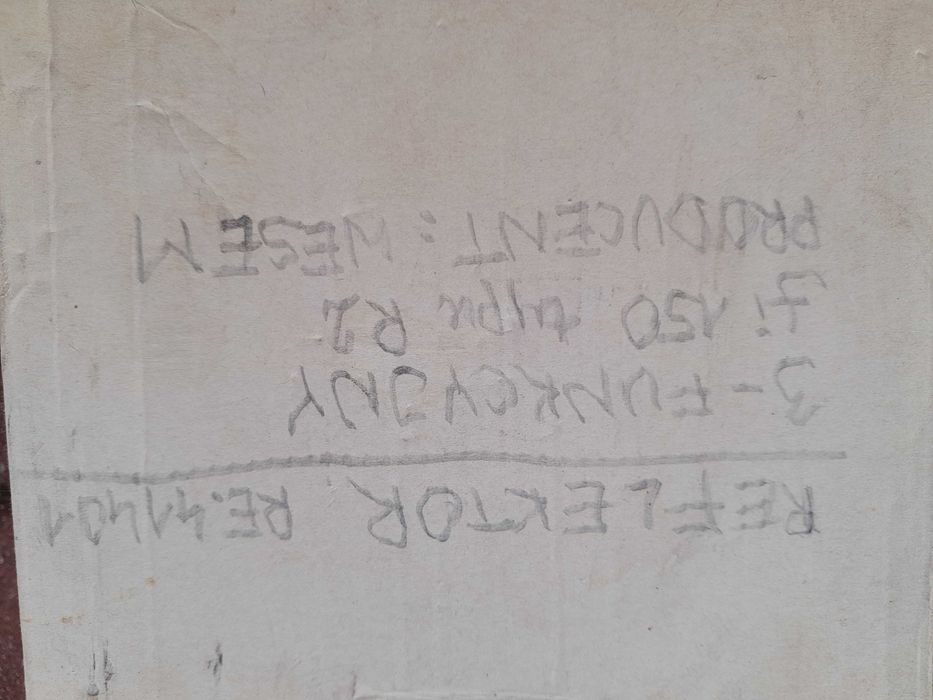 REFLEKTOR RE.41401
3-FUNKCYJNY
fi 150 typu R2
PRODUCENT: WESEM